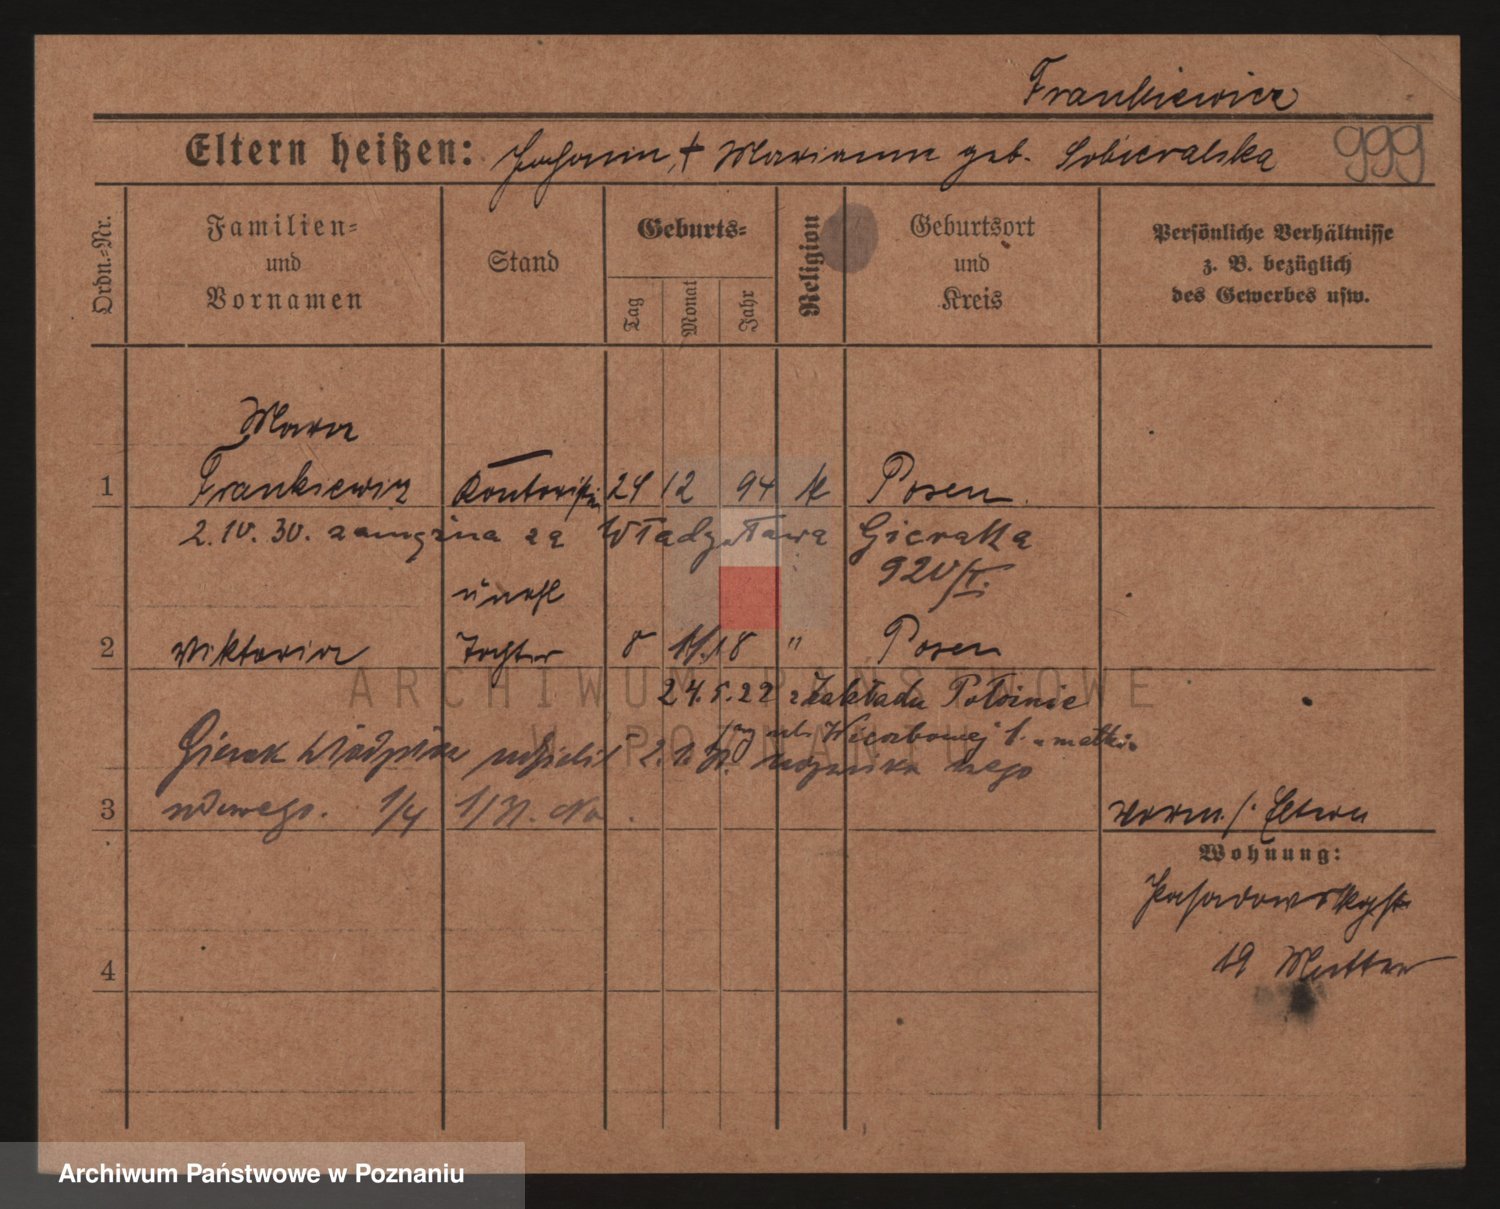 Frankiewicz
Eltern heißen: Johann, + Marianne geb. Sobieralska 999
Ordn.-Nr.
Familien-
und
Vornamen
Stand
Geburts-
Tag
Monat
Jahr
Religion
Geburtsort
und
Kreis
Persönliche Verhältnisse
z. B. bezüglich
des Gewerbes usw.
Maria
1 Frankiewicz Kontoristin 24 12 94 K Posen
2.10.30. zamężna za Władysława Gieraka
920/I.
unehl
2 Viktoria Tochter 8 11.18 " Posen
24.5.22 z Zakładu Położnic
ul. 1. matki
Gierak Władysław udzielił 2.1.31. nazwiska swego
3 1/4 1/31. vorm. /. Eltern
Wohnung:
19 Mutter
4
ARCHIWUM PAŃSTWOWE
W POZNANIU
Archiwum Państwowe w Poznaniu